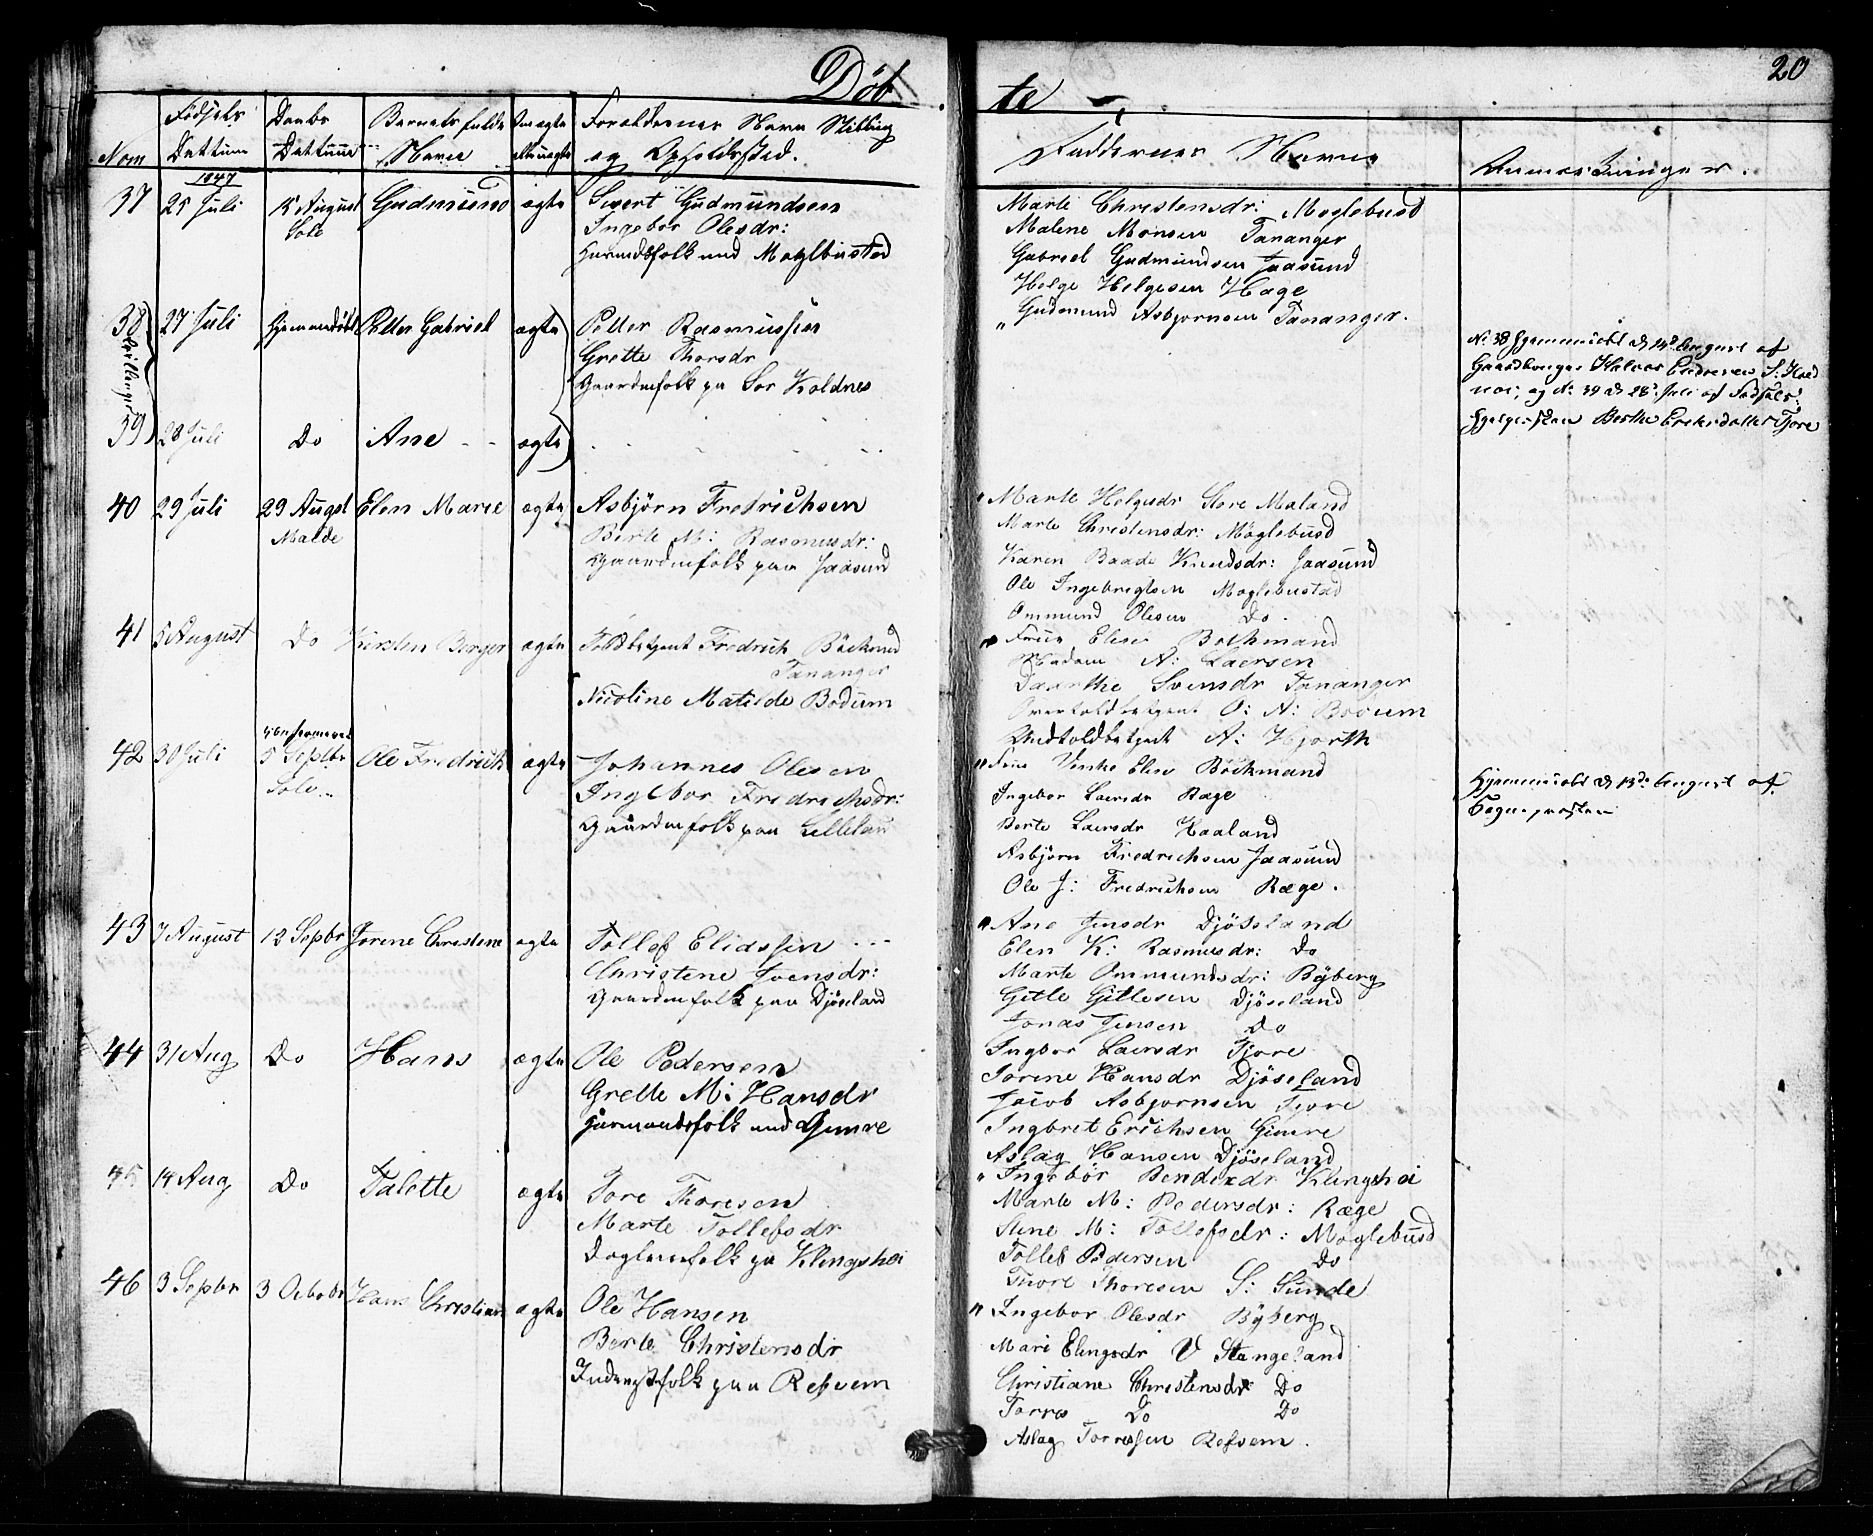 Döb te
20
Nom
Födsels Dattum
Daabs Dattum
Barnets fulde Navn
Om ægte eller uægte
Forældrenes Navn Stilling og Opholdssted.
Faddernes Navne
Anmærkninger.
1847
37 25 Juli 15 August Sole Gudmund ægte
Sivert Gudmundsen
Ingebor Olesdr:
Huusmandsfolk Moglbustad
Marte Christensdr: Moglebust
Malene Monsen Tananger
Gabriel Gudmundsen Jaasund
Helge Helgesen Hage
Gudmund Asbjornsen Tananger.
38 27 Juli Hjemmedöbt Peder Gabriel ægte
Tvillinger
Peder Rasmussen
Grette Thorsdr
Gaardmfolk pa Sor Koldnes
No 38 Hjemmedöbt d 14d August af
Gaardbruger Halvor Endresen S: Kold
nes, og No 39 d 28d Juli af Födsels
Hjelpersken Berthe Eriksdatter Tjore
39 28 Juli Do Ane ægte
40 29 Juli 29 Augst Malde Elen Marie ægte
Asbjörn Fredrichsen
Berte M: Rasmusdr:
Gaardmfolk paa Jaasund
Marte Helgesdr Store Maland
Marte Christensdr: Möglebusd
Karen Baade Knudsdr: Jaasund
Ole Ingebregtsen Moglebustad
Ommund Olesen Do
41 5 August Do Kirsten Berger ægte
Toldbetjent Fredrich Böckmand
Tananger
Nicoline Matilde Bodum
Frue Elise Bockmand
Madam A: Laersen
Daarthe Svensdr Tananger
Overtoldbetjent O: A: Bodum
Undtoldbetjent A: Hjorth
42 30 Juli 5 Septbr Sole Ole Fredrich ægte
Johannes Olesen
Ingebor Fredrichsdr:
Gaardmfolk paa
Frue Elise Böckmand
Ingebor Laersdr Ræge
Berte Laersdr Haaland
Asbjörn Fredrichsen Jaasund
Ole J: Fredrichsen Ræge.
Hjemmedöbt d 13de August af
Sognepresten
43 7 August 12 Sepbr Jorene Christene ægte
Tollef Eliassen
Christene Joensdr:
Gaardmfolk paa Djöseland
Ane Jensdr Djöseland
Elen K: Rasmusdr: Do
Marte Ommundsdr: Byberg
Gitle Gitlesen Djöseland
Jonas Jensen Do
44 31 Aug Do Hans ægte
Ole Pedersen
Grette M: Hansdr
Huusmandsfolk und Gimre
Ingbor Laersdr Tjore
Jorene Hansdr Djöseland
Jacob Asbjornsen Tjore
Ingbret Erichsen Gimre
Aslag Hansen Djöseland
45 14 Aug Do Talette ægte
Tore Thoresen
Marte Tollefsdr
pa Klingshei
Ingebör Bendixdr Klingshei
Marte M: Pedersdr: Ræge
Stene M: Tollefsdr: Moglebusd
Tollef Pedersen Do
Thore Thoresen S: Sunde
46 3 Sepbr 3 Octobr Hans Christian ægte
Ole Hansen
Berte Christensdr
Inderstfolk paa Refsem
Ingebor Olesdr Byberg
Mari Elingsdr V Stangeland
Christiane Christensdr Do
Torres Do Do
Aslag Torresen Refsem.